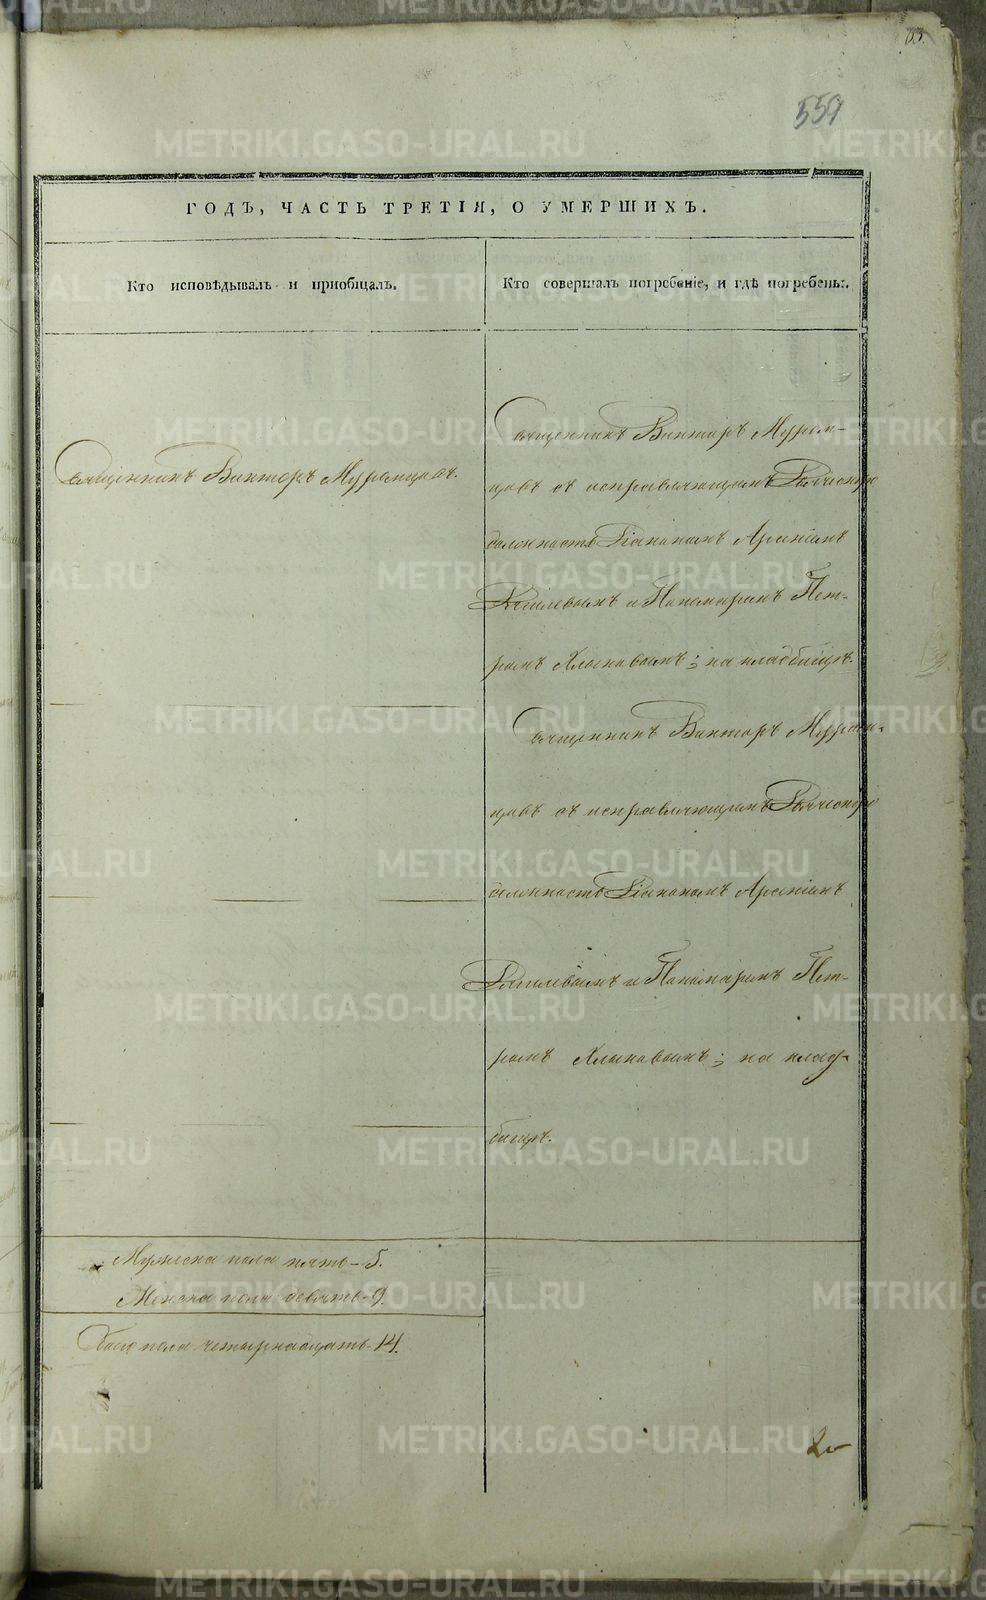 559
ГОДЪ, ЧАСТЬ ТРЕТІЯ, О УМЕРШИХЪ.
Кто исповѣдывалъ и приобщалъ.
Кто совершалъ погребеніе, и гдѣ погребены.
Священникъ Викторъ Муромцовъ.
Священникъ Викторъ Муром-
цовъ съ исправляющимъ
должность Діакономъ Арсеніемъ
и Пономаремъ Пет-
ромъ Хлыновымъ; на кладбищѣ.
Священникъ Викторъ Муром-
цовъ съ исправляющимъ
должность Діакономъ Арсеніемъ
и Пономаремъ Пет-
ромъ Хлыновымъ; на клад-
бищѣ.
Мужеска пола пять - 5.
Женска пола девять - 9.
Обоего пола четырнадцать - 14.
METRIKI.GASO-URAL.RU